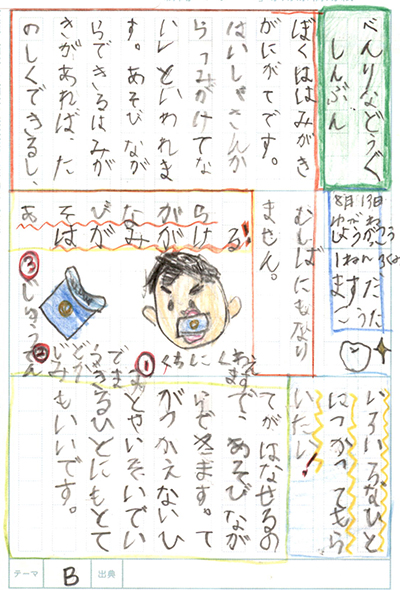 べんりなどうぐ
しんぶん
8月13日
しょうがっこう
1ねん 3くみ
ますだ
ぼくははみがき
がにがてです。
はいしゃさんか
らつみがけてな
いといわれま
す。あそびなが
らできるはみが
きがあれば、た
のしくできるし、
むしばにもなり
ません。
あそびながら
はみがける!
①くちにくわえ
ます
②
③じゅうでん
てがはなせるの
で、あそびなが
らできます。て
がつかえないひ
とや、いそいでい
るひとにもとて
もいいです。
いろいろなひと
につかってもら
いたい!
テーマ
B
出典